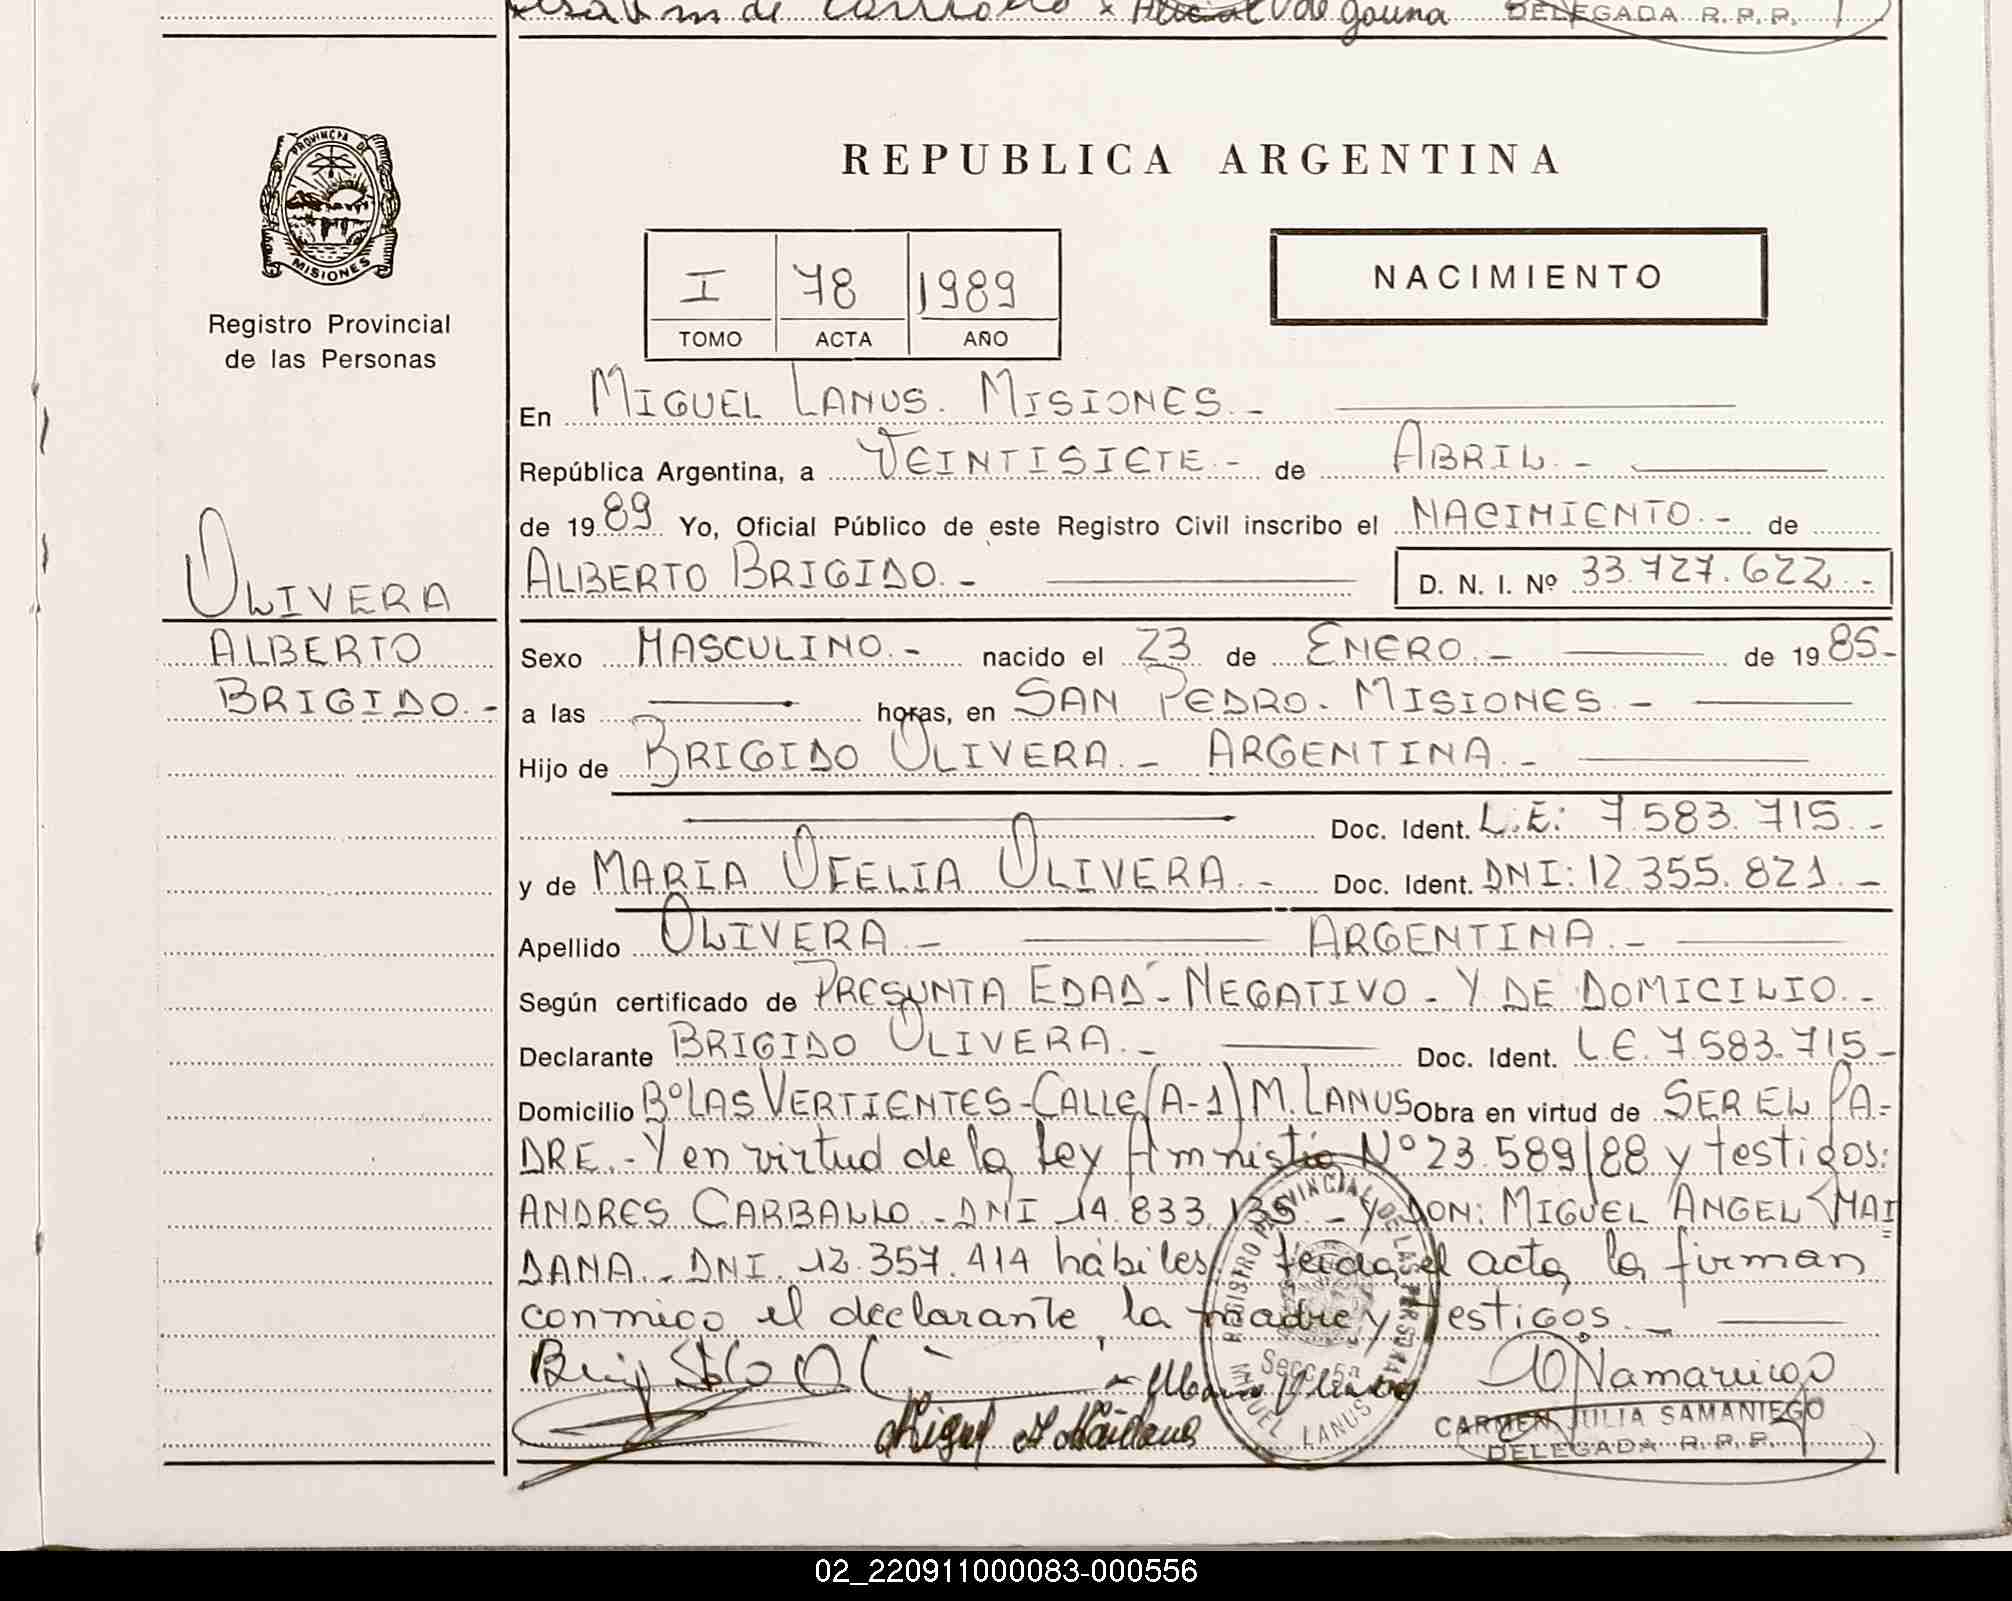 de gauna DELEGADA R. P. P.
PROVINCIA D
MISIONES
Registro Provincial
de las Personas
REPUBLICA ARGENTINA
I 78 1989
TOMO ACTA AÑO
NACIMIENTO
En MIGUEL LANUS. MISIONES.-
República Argentina, a VEINTISIETE.- de ABRIL.-
de 1989 Yo, Oficial Público de este Registro Civil inscribo el NACIMIENTO.- de
ALBERTO BRIGIDO.- D. N. I. Nº 33.727.622.-
OLIVERA
ALBERTO
BRIGIDO.-
Sexo MASCULINO.- nacido el 23 de ENERO.- de 1985-
a las horas, en SAN PEDRO. MISIONES.-
Hijo de BRIGIDO OLIVERA.- ARGENTINA.-
Doc. Ident. L.E: 7.583.715.-
y de MARIA OFELIA OLIVERA.- Doc. Ident. DNI: 12.355.821.-
Apellido OLIVERA.- ARGENTINA.-
Según certificado de PRESUNTA EDAD - NEGATIVO - Y DE DOMICILIO.-
Declarante BRIGIDO OLIVERA.- Doc. Ident. L.E. 7.583.715-
Domicilio Bº LAS VERTIENTES-CALLE (A-1) M. LANUS Obra en virtud de SER EL PA-
DRE.- Y en virtud de la Ley Amnistia Nº 23.589/88 y testigos:
ANDRES CARBALLO - DNI 14.833.135.- Y DON: MIGUEL ANGEL MAI
DANA.- DNI. 12.357.414 hábiles, leida el acta la firman
conmigo el declarante, la madre y testigos.-
REGISTRO PROVINCIAL DE LAS PERSONAS
Secc. 5a
MIGUEL LANUS
CARMEN JULIA SAMANIEGO
DELEGADA R. P. P.
02_220911000083-000556